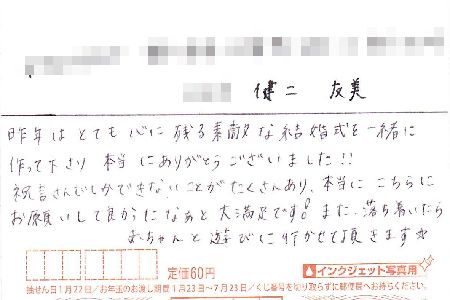 健二 友美
昨年はとても心に残る素敵な結婚式を一緒に
作って下さり 本当にありがとうございました!!
祝言さんでしかできないことがたくさんあり、本当にこちらに
お願いして良かったなぁと大満足です! また、落ち着いたら
おちゃんと遊びに行かせて頂きます☆
定価60円
インクジェット写真用
抽せん日1月22日/お年玉のお渡し期間1月23日～7月23日/くじ番号を切り取らずに郵便局へお持ちください。